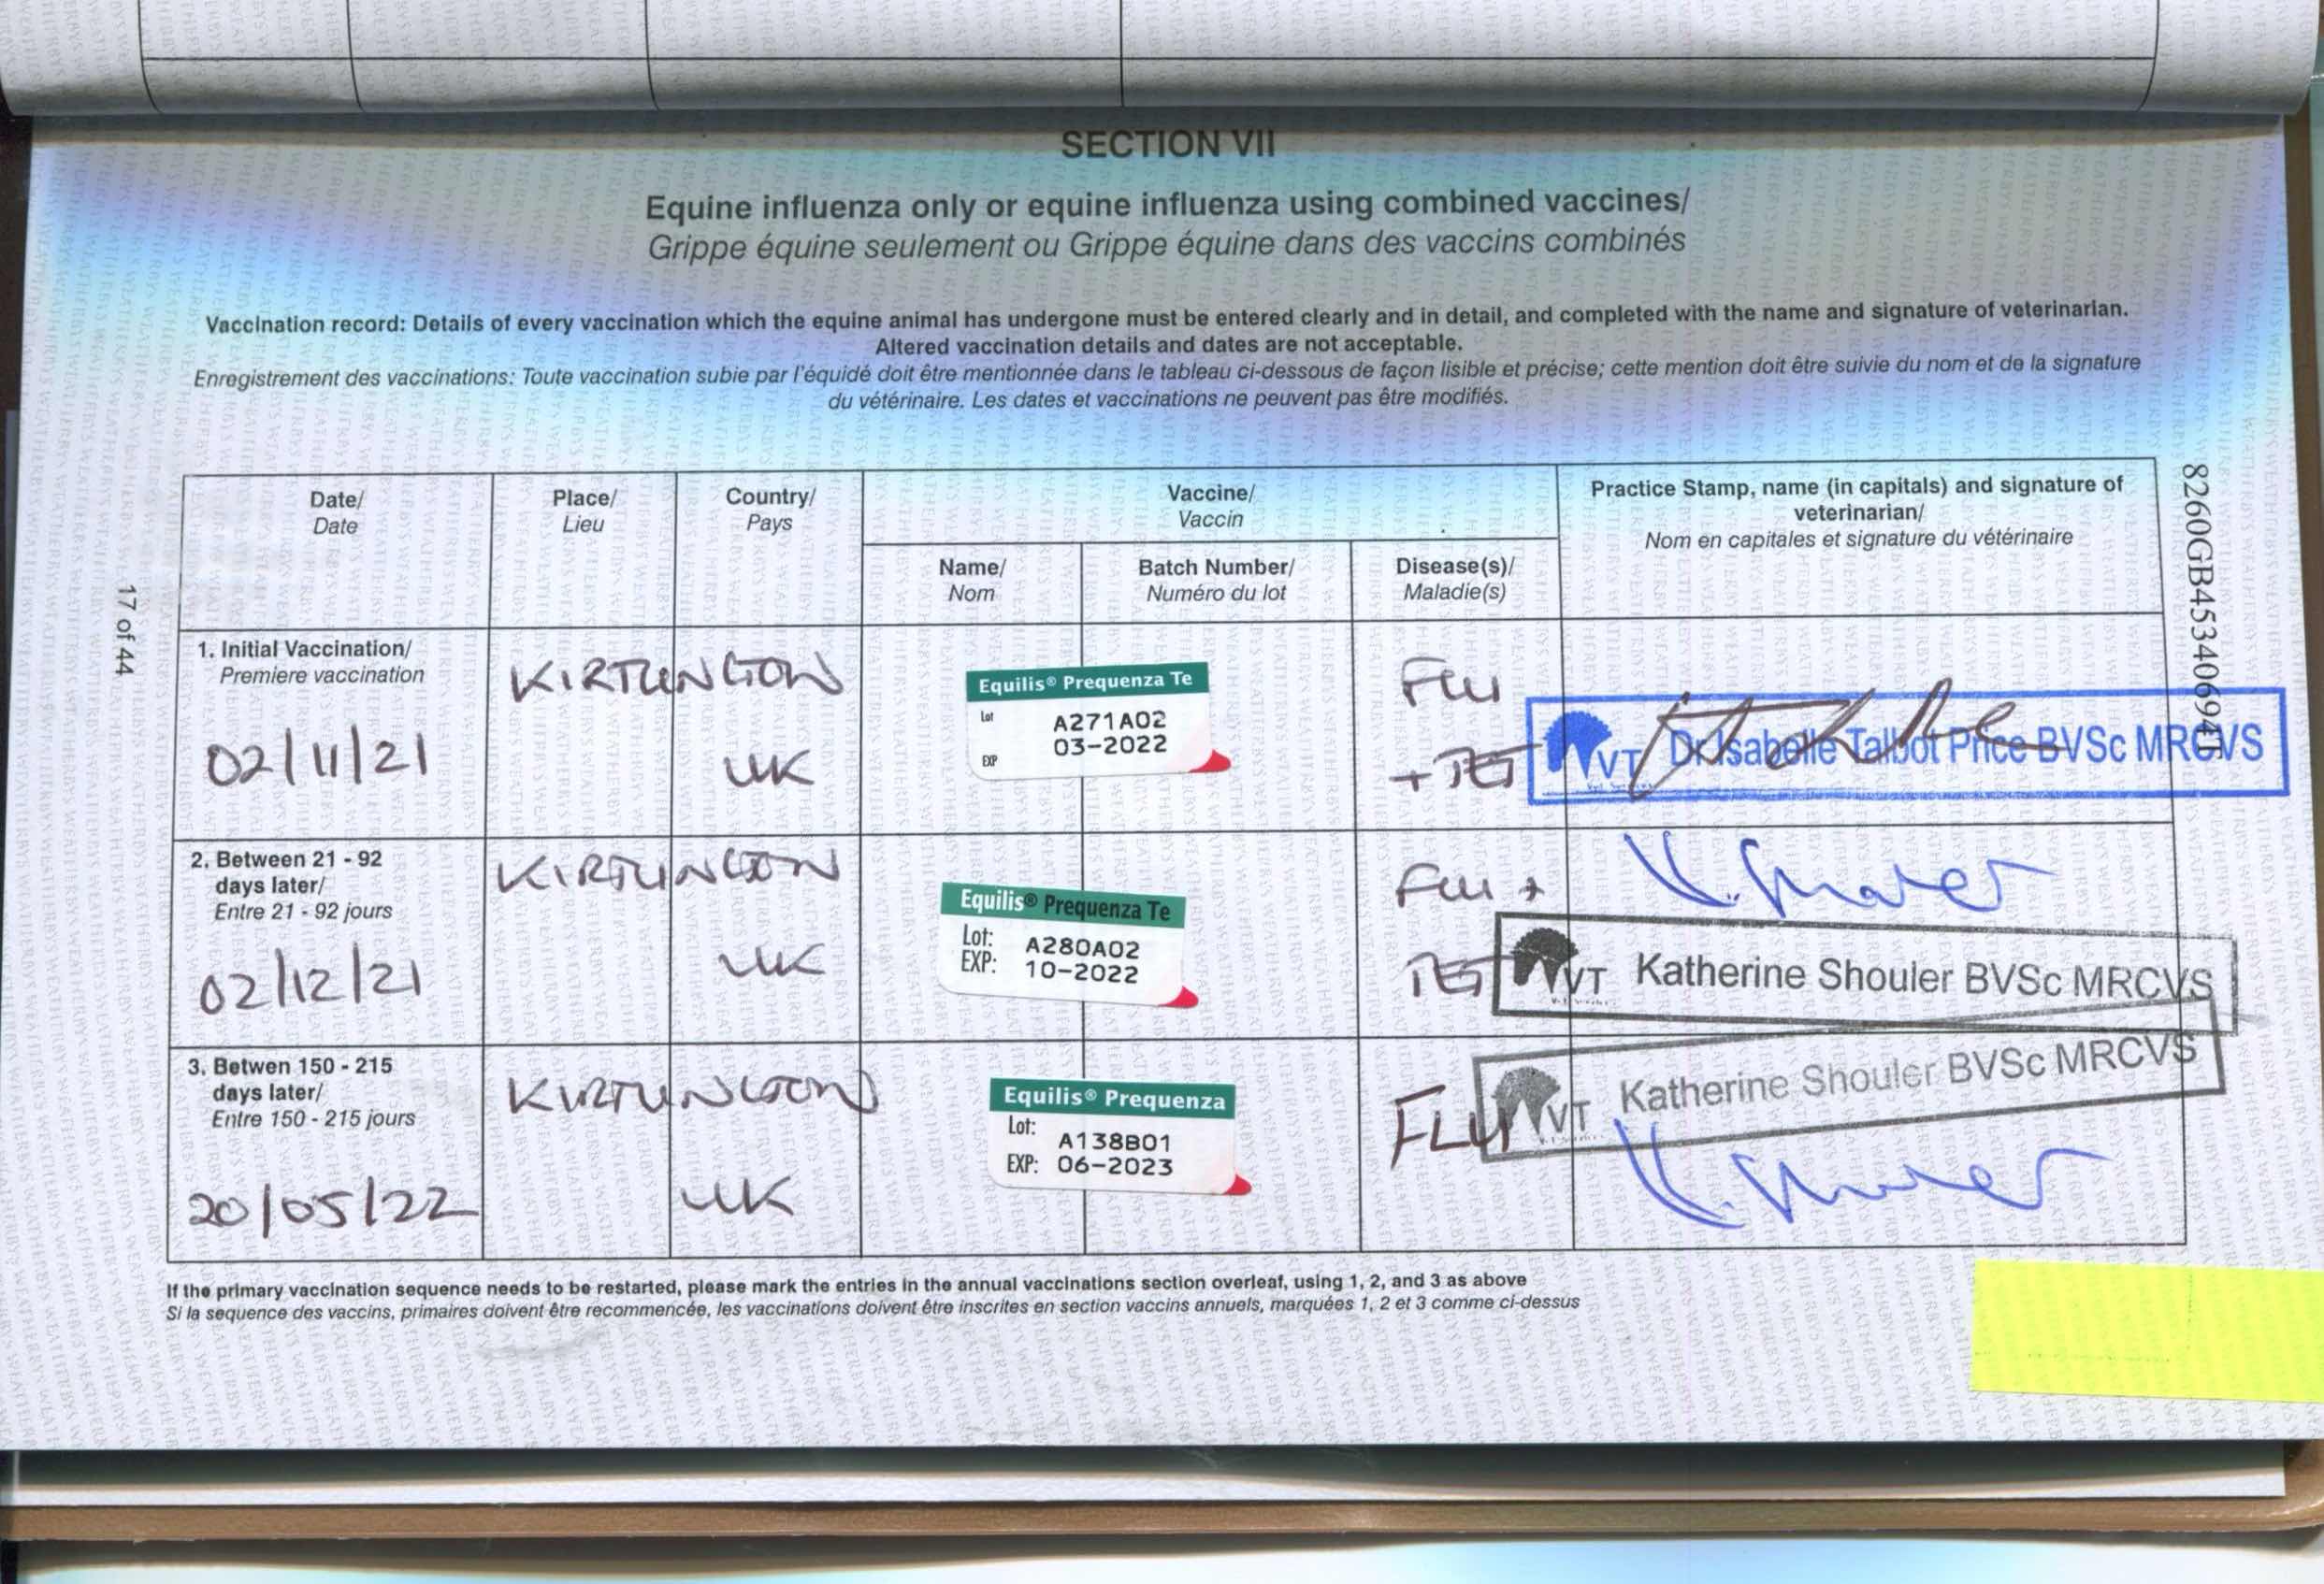 SECTION VII
Equine influenza only or equine influenza using combined vaccines/
Grippe équine seulement ou Grippe équine dans des vaccins combinés
Vaccination record: Details of every vaccination which the equine animal has undergone must be entered clearly and in detail, and completed with the name and signature of veterinarian.
Altered vaccination details and dates are not acceptable.
Enregistrement des vaccinations: Toute vaccination subie par l'équidé doit être mentionnée dans le tableau ci-dessous de façon lisible et précise; cette mention doit être suivie du nom et de la signature
du vétérinaire. Les dates et vaccinations ne peuvent pas être modifiés.
Date/
Date
Place/
Lieu
Country/
Pays
Vaccine/
Vaccin
Name/
Nom
Batch Number/
Numéro du lot
Disease(s)/
Maladie(s)
Practice Stamp, name (in capitals) and signature of
veterinarian/
Nom en capitales et signature du vétérinaire
1. Initial Vaccination/
Premiere vaccination
02/11/21
KIRTLINGTON
UK
Equilis® Prequenza Te
Lot A271A02
EXP 03-2022
Flu
+ TET
VT Dr Isabelle Talbot Price BVSc MRCVS
2. Between 21 - 92
days later/
Entre 21 - 92 jours
02/12/21
KIRTLINGTON
UK
Equilis® Prequenza Te
Lot: A280A02
EXP: 10-2022
Flu +
TET
VT Katherine Shouler BVSc MRCVS
3. Betwen 150 - 215
days later/
Entre 150 - 215 jours
20/05/22
KIRTLINGTON
UK
Equilis® Prequenza
Lot: A138B01
EXP: 06-2023
FLU
VT Katherine Shouler BVSc MRCVS
If the primary vaccination sequence needs to be restarted, please mark the entries in the annual vaccinations section overleaf, using 1, 2, and 3 as above
Si la sequence des vaccins, primaires doivent être recommencée, les vaccinations doivent être inscrites en section vaccins annuels, marquées 1, 2 et 3 comme ci-dessus
17 of 44
8260GB45340694T